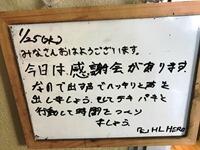 1/25(水)
みなさんおはようございます。
今日は、感謝会があります。
なので出す声でハッキリと声を
出しましょう。そしてテキパキと
行動して時間をつくり
ましょう。
HERO